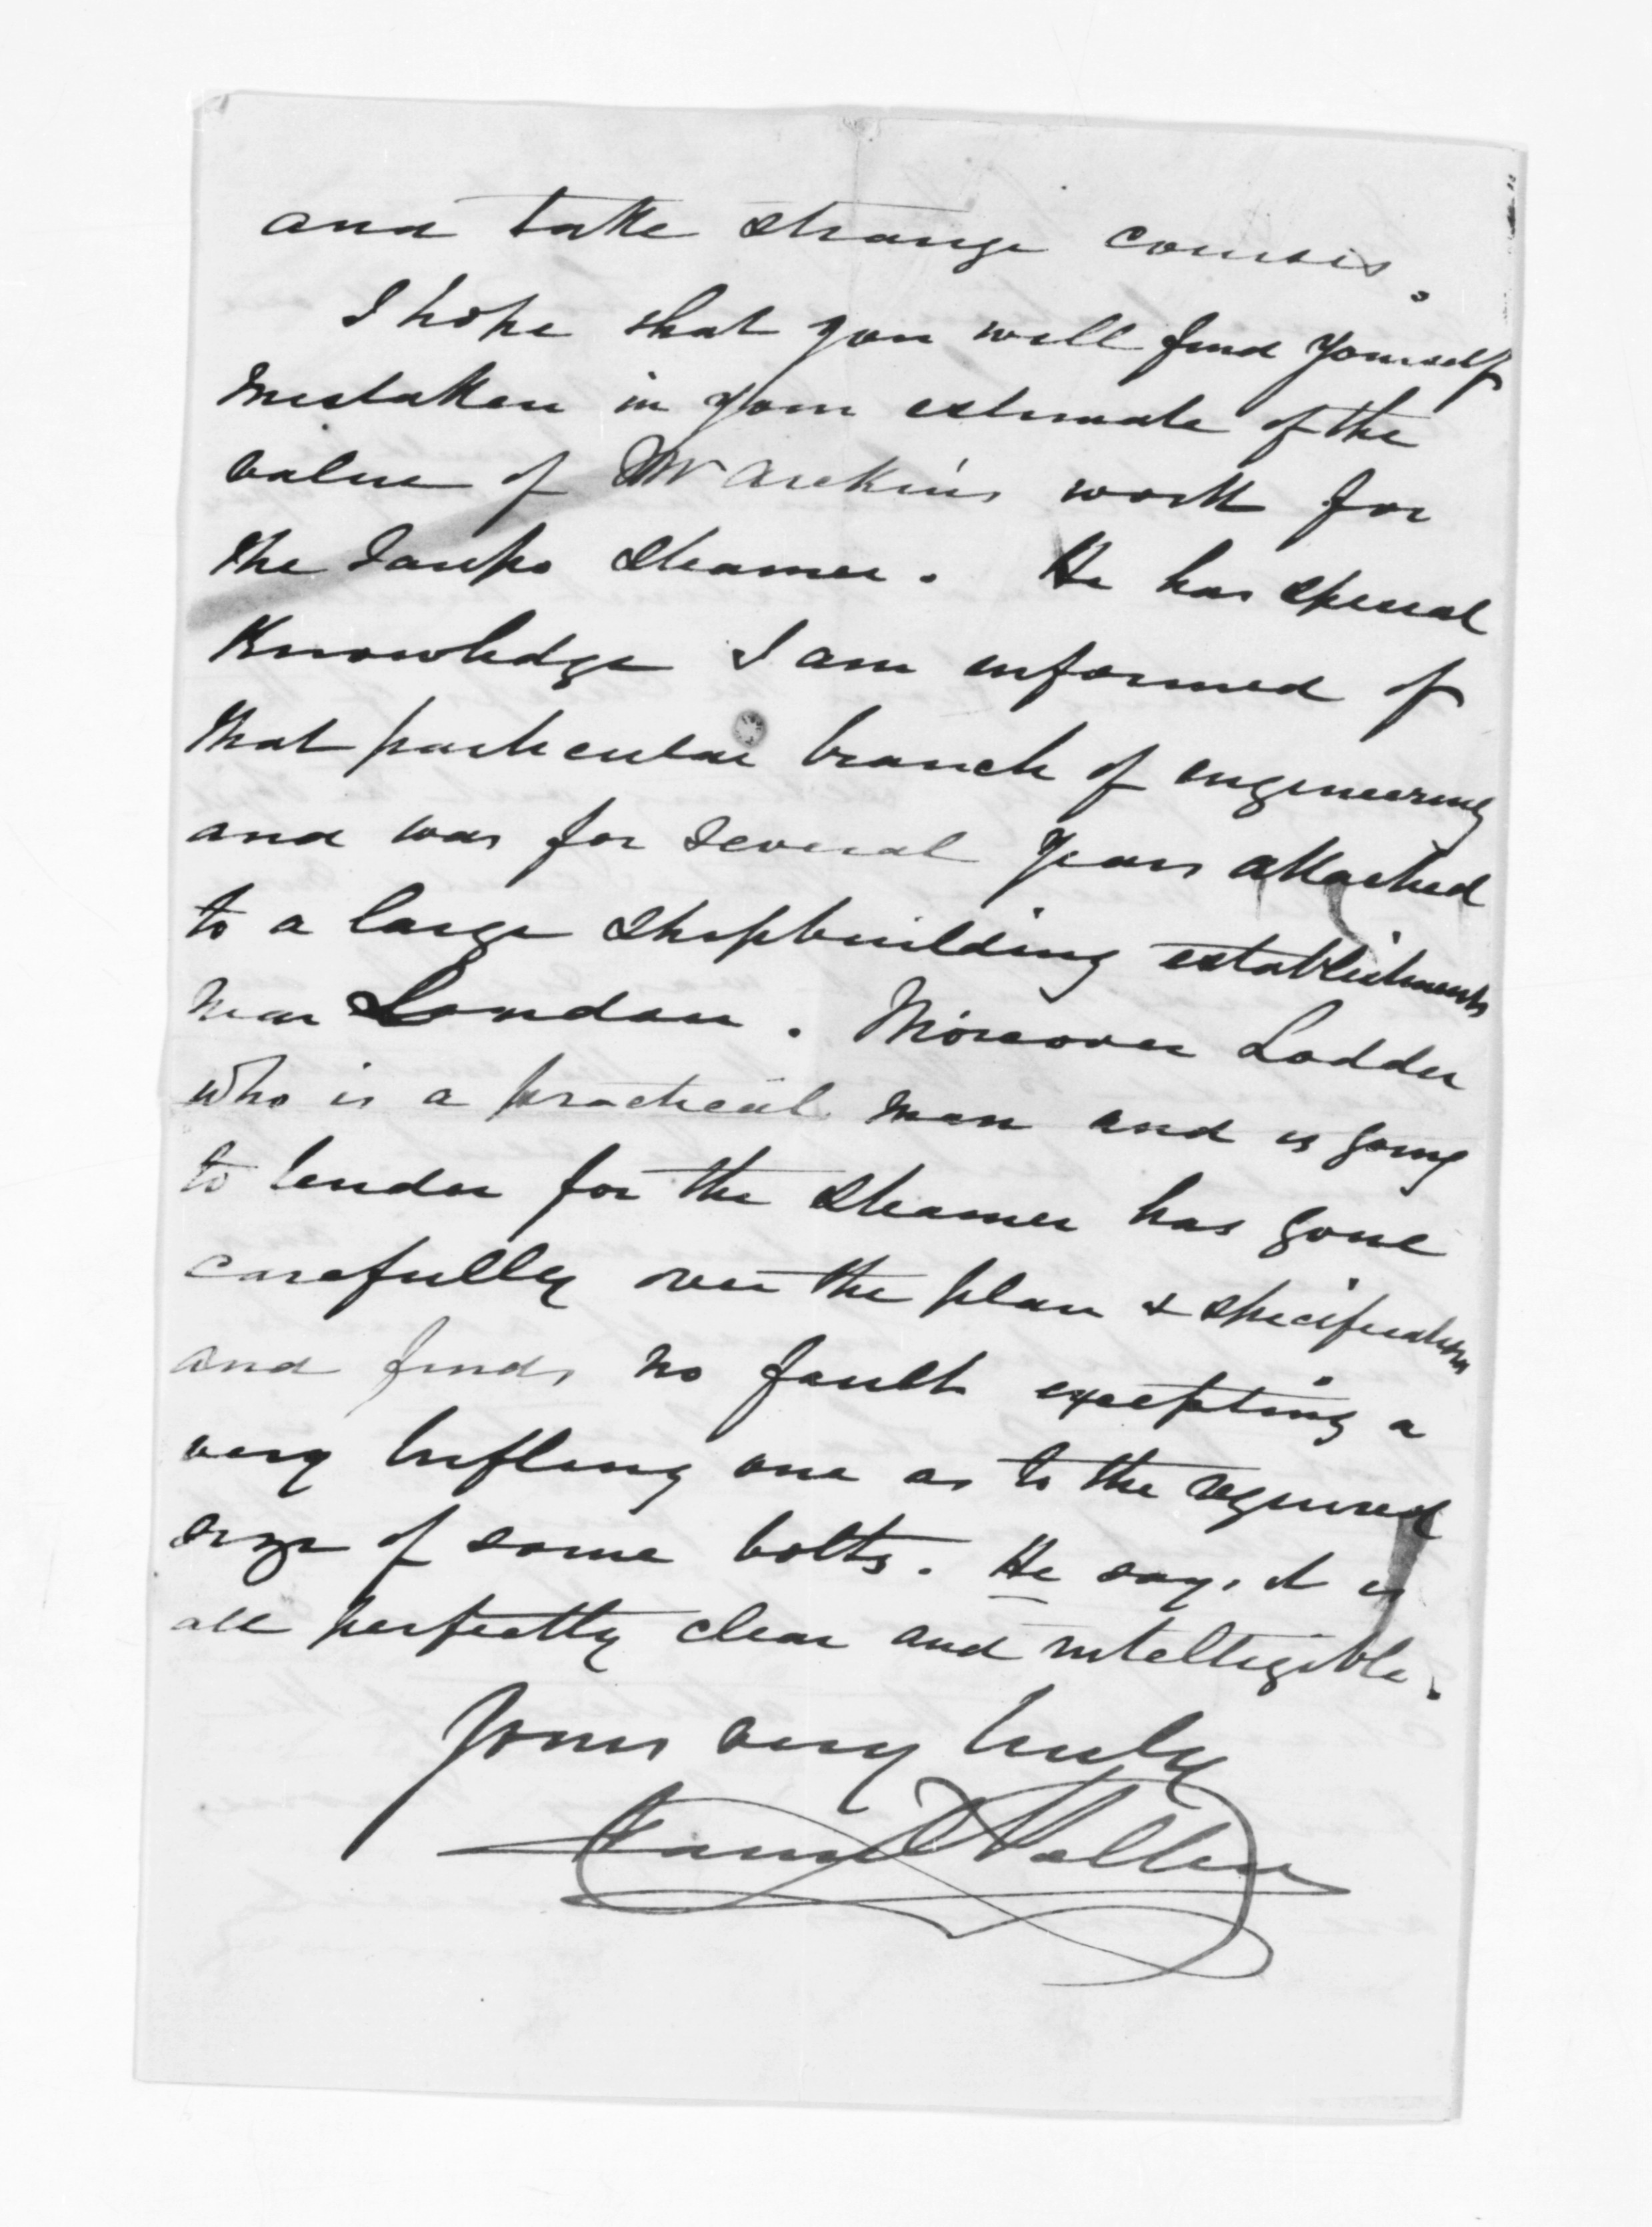 and take strange courses.
I hope that you will find yourself
mistaken in your estimate of the
value of Mr Aickin's work for
the Taupo Steamer. He has special
Knowledge I am informed of
that particular branch of engineering
and was for several years attached
to a large Shipbuilding establishment
near London. Moreover Lodder
who is a practical man and is going
to tender for the Steamer has gone
carefully over the plan & specifications
and finds no fault excepting a
very trifling one as to the required
size of some bolts. He says it is
all perfectly clear and intelligible.
Yours very truly
Daniel Pollen